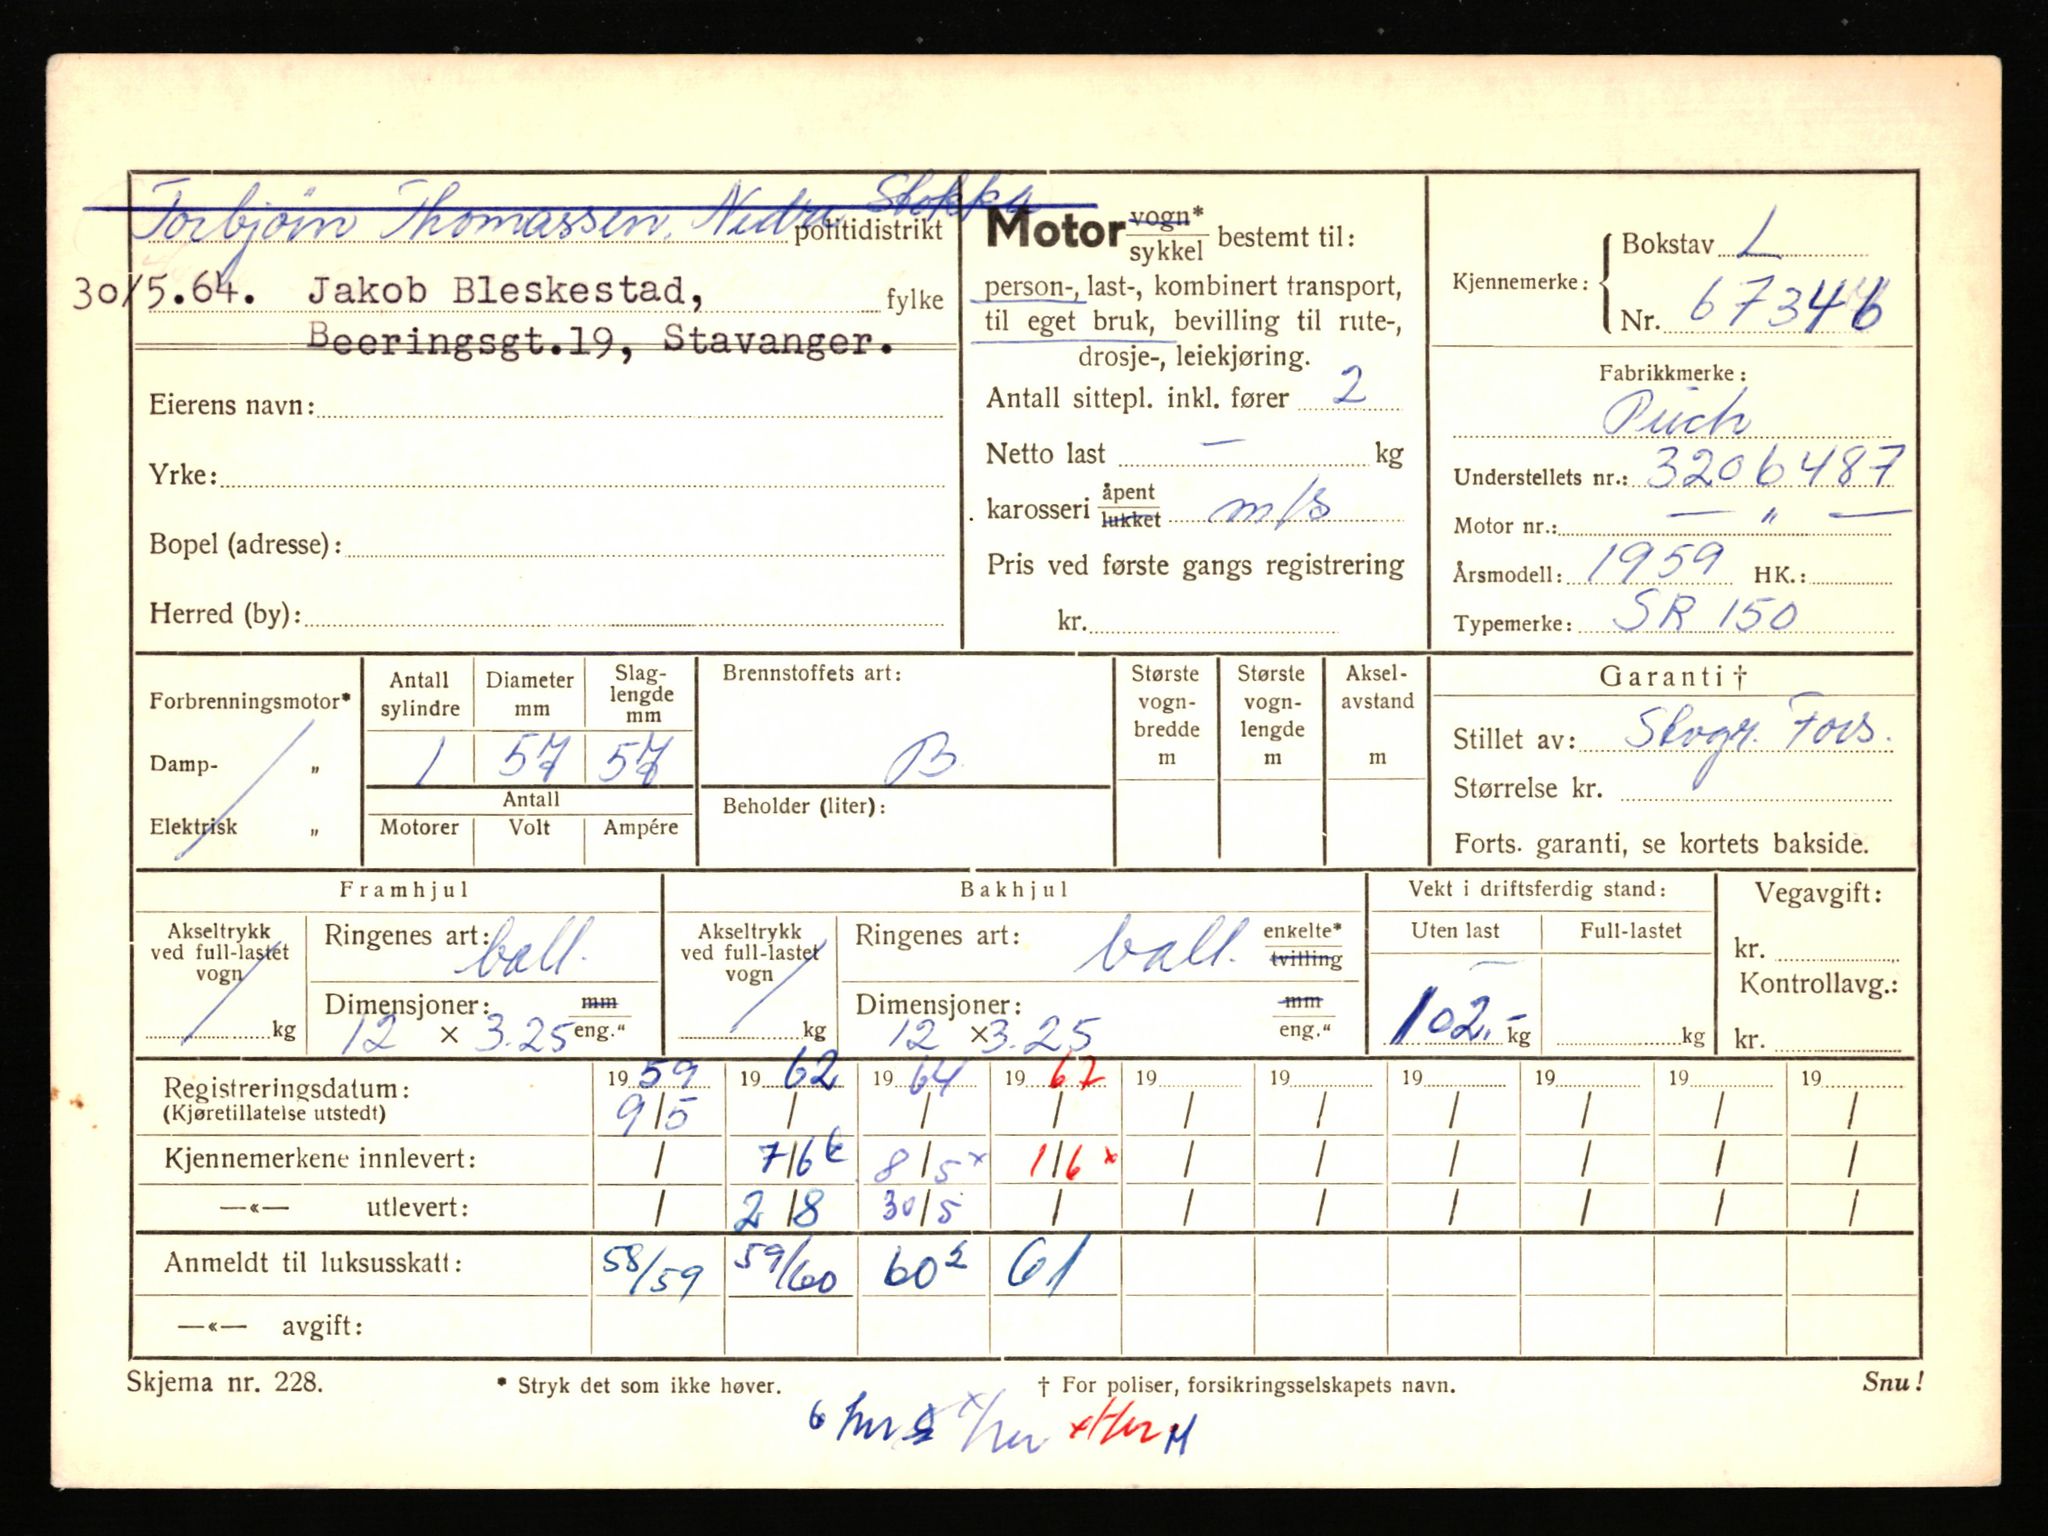 Torbjörn Thomassen, Nedre Stokka
politidistrikt
30/5.64. Jakob Bleskestad,
fylke
Beeringsgt.19, Stavanger.
Eierens navn:
Yrke:
Bopel (adresse):
Herred (by):
Motor vogn* sykkel bestemt til:
person-, last-, kombinert transport,
til eget bruk, bevilling til rute-,
drosje-, leiekjøring.
Antall sittepl. inkl. fører 2
Netto last — kg
karosseri åpent lukket m/s
Pris ved første gangs registrering
kr.
Kjennemerke: Bokstav L
Nr. 67346
Fabrikkmerke:
Puch
Understellets nr.: 3206487
Motor nr.: — „ —
Årsmodell: 1959 HK.:
Typemerke: SR 150
Forbrenningsmotor*
Damp- „
Elektrisk „
Antall sylindre
Diameter mm
Slag-lengde mm
1 57 57
Antall
Motorer Volt Ampére
Brennstoffets art:
B
Beholder (liter):
Største vogn-bredde m
Største vogn-lengde m
Aksel-avstand m
Garanti †
Stillet av: Stvgr. Fors.
Størrelse kr.
Forts. garanti, se kortets bakside.
Framhjul
Akseltrykk ved full-lastet vogn
kg
Ringenes art: ball.
Dimensjoner: mm
12 × 3.25 eng."
Bakhjul
Akseltrykk ved full-lastet vogn
kg
Ringenes art: ball. enkelte* tvilling
Dimensjoner: mm
12 × 3.25 eng."
Vekt i driftsferdig stand:
Uten last Full-lastet
102.- kg kg
Vegavgift:
kr.
Kontrollavg.:
kr.
Registreringsdatum: 1959 1962 1964 1967 19 19 19 19 19 19
(Kjøretillatelse utstedt) 9/5 / / / / / / / / /
Kjennemerkene innlevert: / 7/6 8/5 x 1/6 x / / / / / /
—«— utlevert: / 2/8 30/5 / / / / / / /
Anmeldt til luksusskatt: 58/59 59/60 60 61
—«— avgift:
Skjema nr. 228. * Stryk det som ikke høver. † For poliser, forsikringsselskapets navn. Snu!